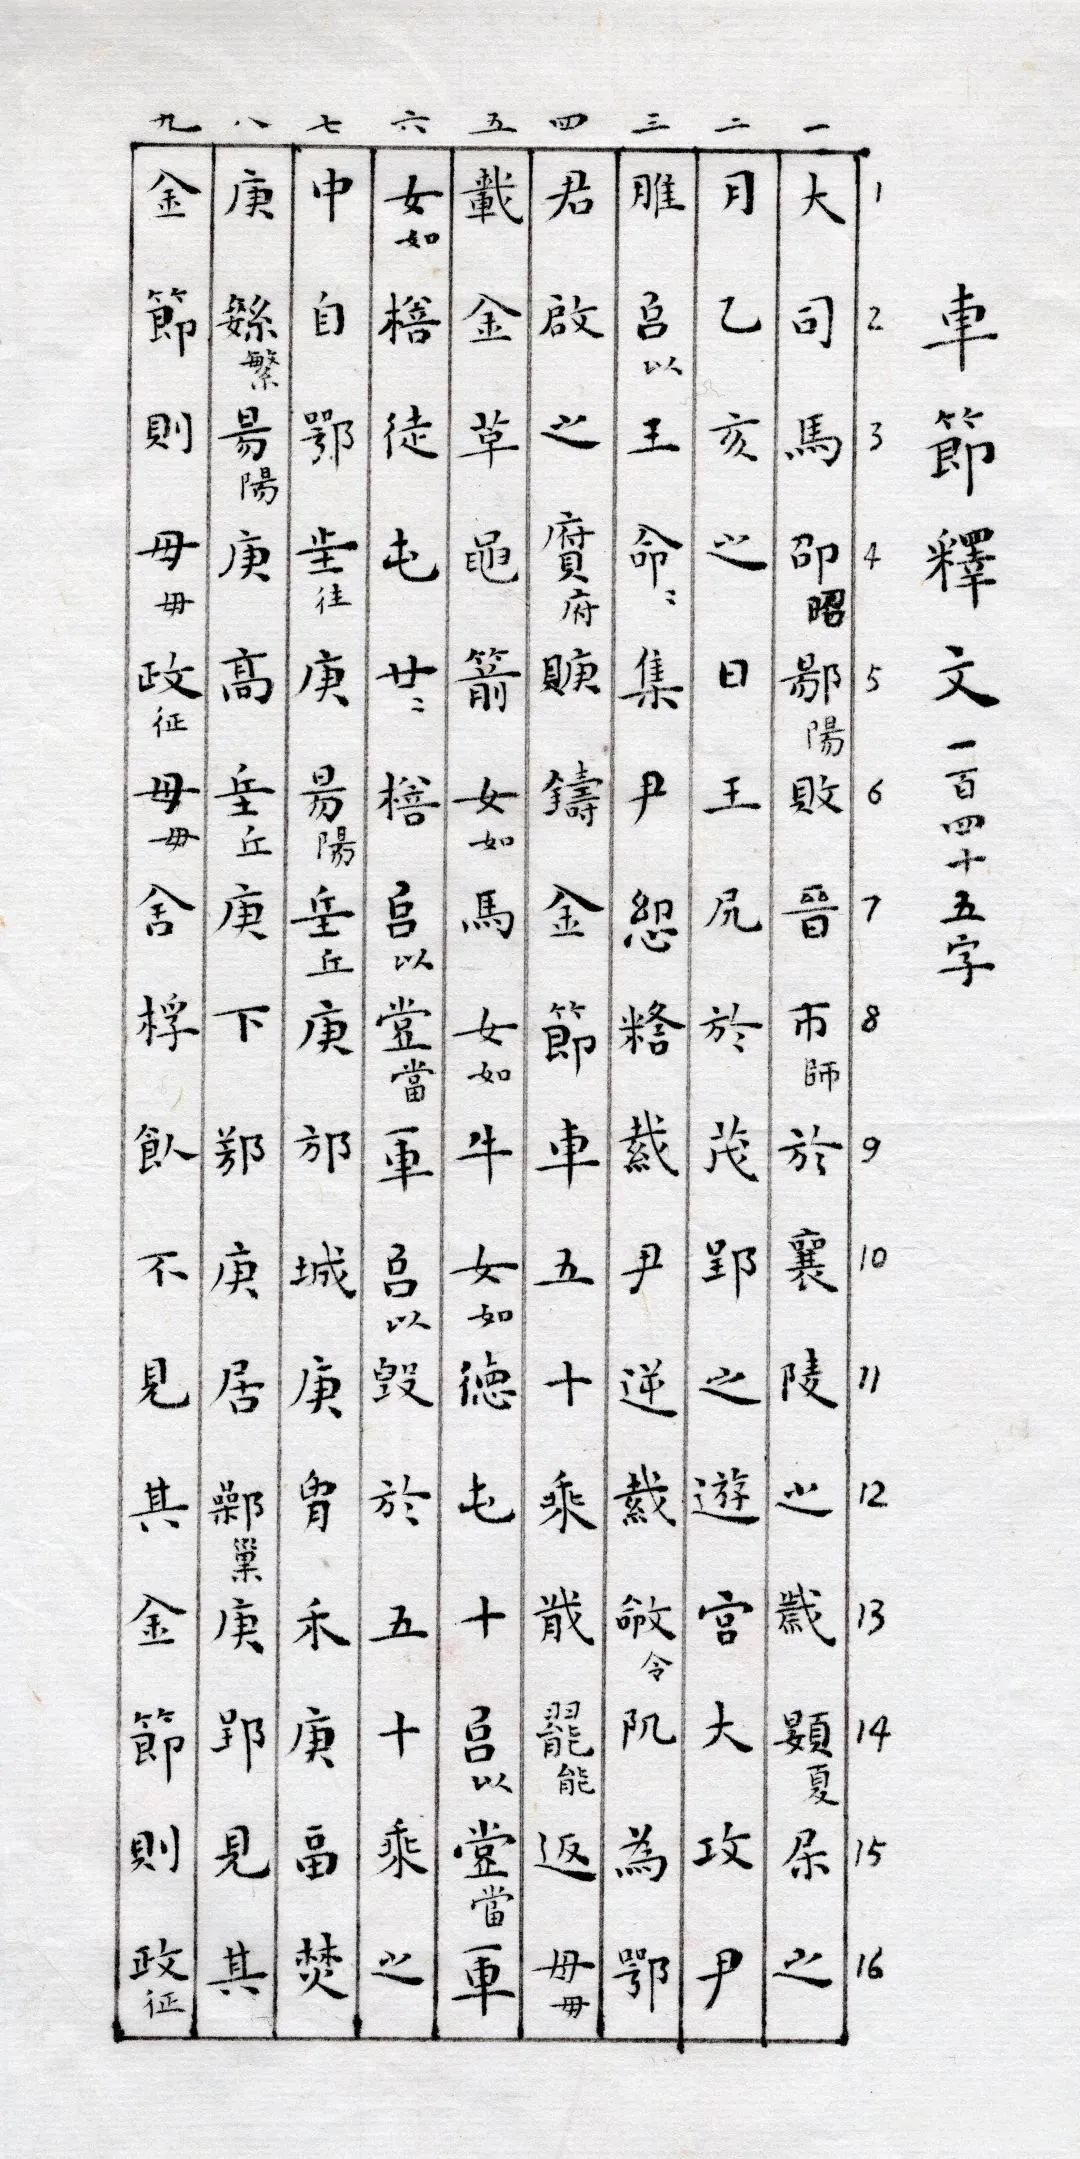 車節釋文 一百四十五字
1 2 3 4 5 6 7 8 9 10 11 12 13 14 15 16
一 大司馬卲昭陽敗晉帀師於襄陵之夏之
二 月乙亥之日王凥於茂郢之遊宮大攻尹
三 脽㠯以王命〻集尹尹逆令阢為鄂
四 君啟之府鑄金節車五十乘能返毋毋
五 載金革黽箭女如馬女如牛女如德屯十㠯以堂當一車
六 女如徒屯廿〻㠯以堂當一車㠯以毀於五十乘之
七 中自鄂㞷往庚昜陽丘庚邡城庚禾庚畐焚
八 庚緐繁昜陽庚高丘庚下庚居鄛巢庚郢見其
九 金節則毋毋政征毋毋舍桴飤不見其金節則政征